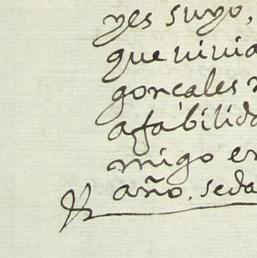 yes suyo,
que uiuia
gonçales
afabilida
migo en
año. seda